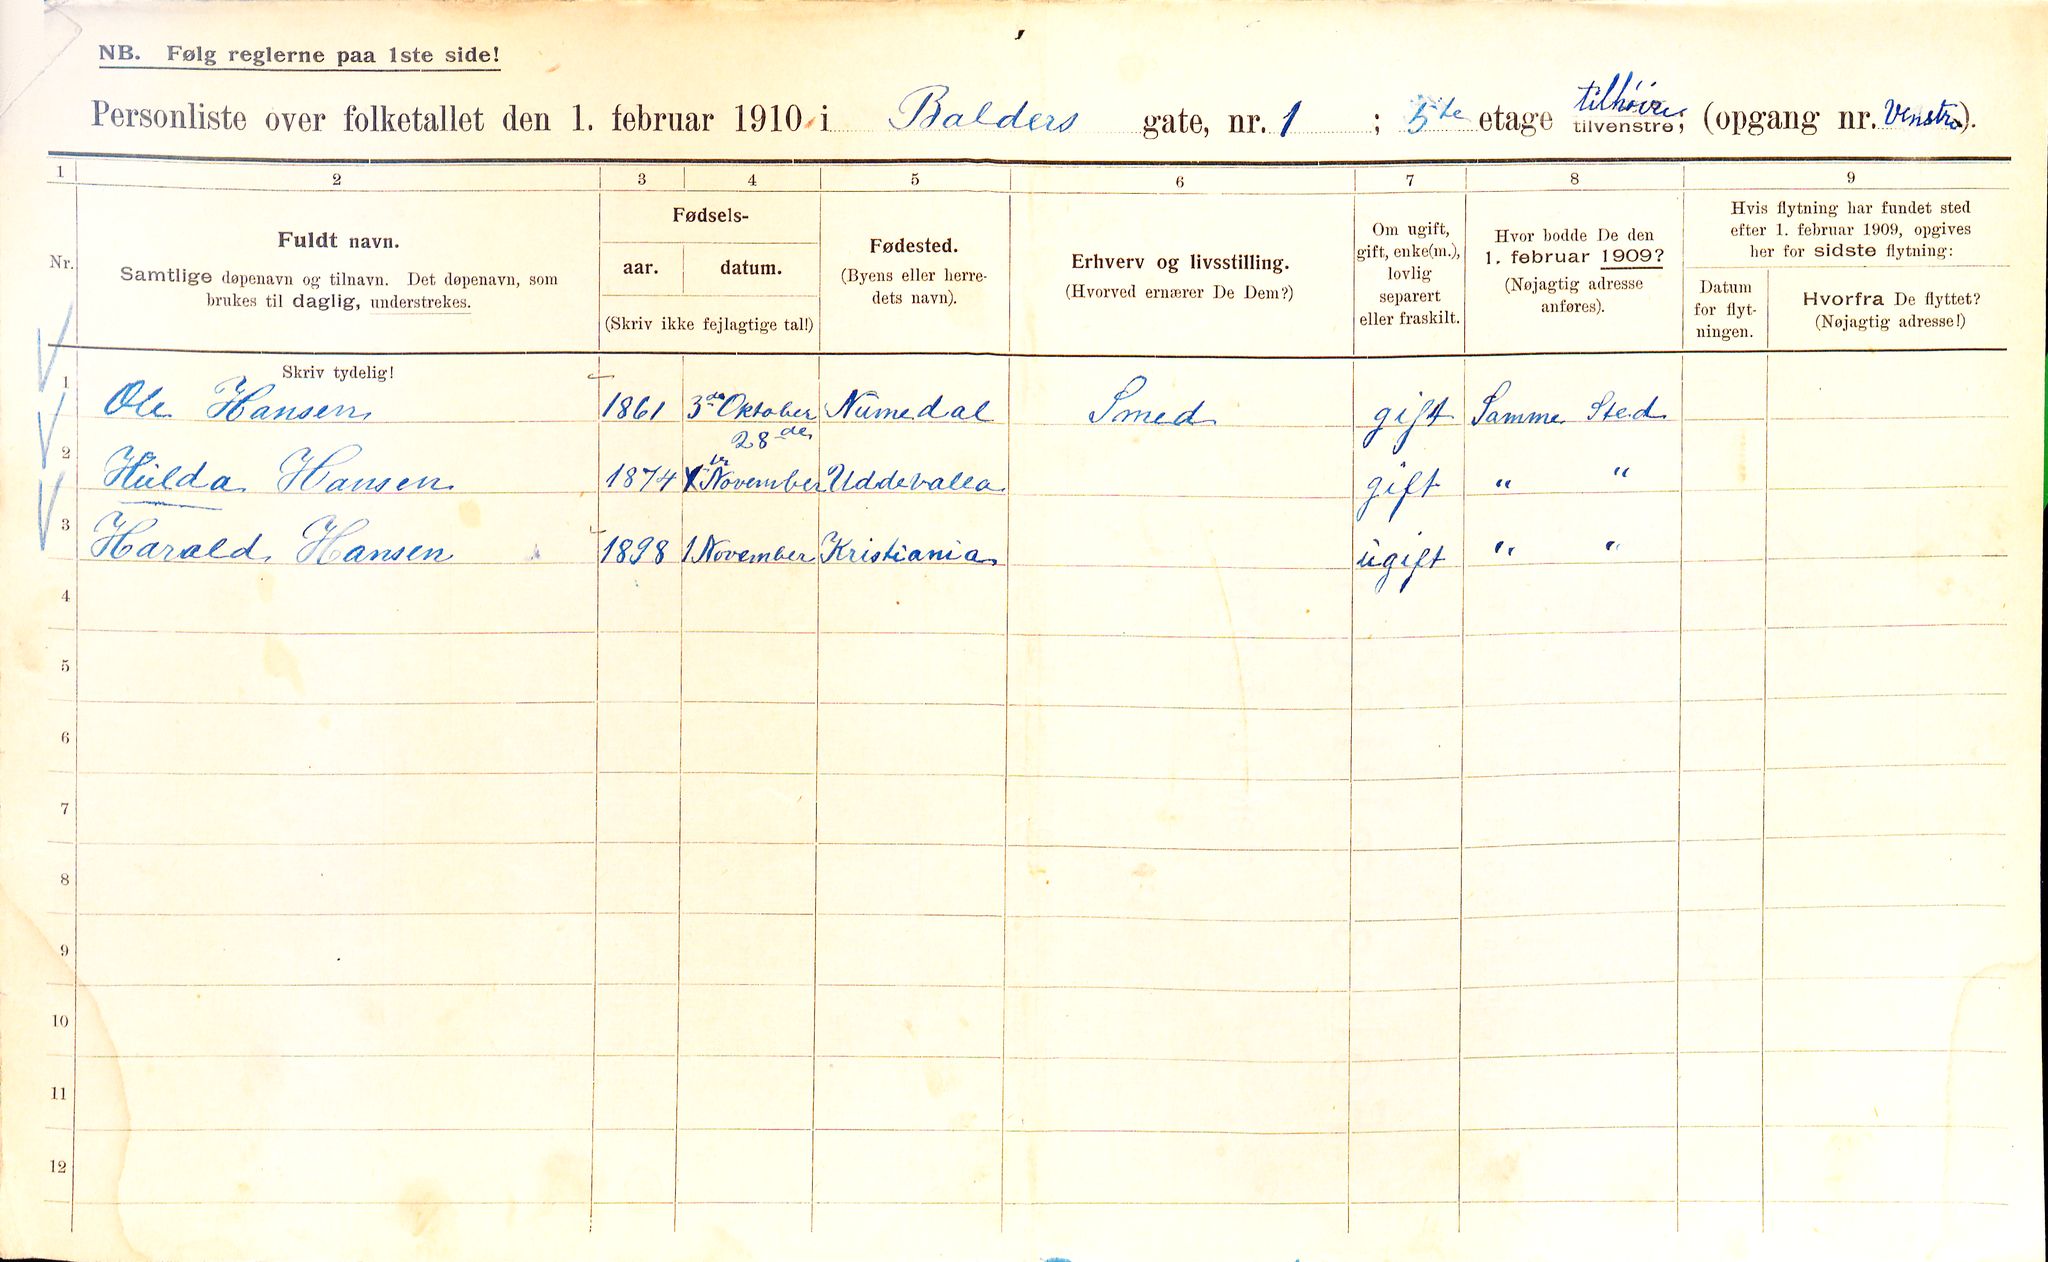 NB. Følg reglerne paa 1ste side!
Personliste over folketallet den 1. februar 1910 i Balders gate, nr. 1 ; 5te etage tilhøire, tilvenstre, (opgang nr. Venstre).
1 2 3 4 5 6 7 8 9
Nr.
Fuldt navn.
Samtlige døpenavn og tilnavn. Det døpenavn, som
brukes til daglig, understrekes.
Fødsels-
aar. datum.
(Skriv ikke fejlagtige tal!)
Fødested.
(Byens eller herre-
dets navn).
Erhverv og livsstilling.
(Hvorved ernærer De Dem?)
Om ugift,
gift, enke(m.),
lovlig
separert
eller fraskilt.
Hvor bodde De den
1. februar 1909?
(Nøjagtig adresse
anføres).
Hvis flytning har fundet sted
efter 1. februar 1909, opgives
her for sidste flytning:
Datum
for flyt-
ningen.
Hvorfra De flyttet?
(Nøjagtig adresse!)
Skriv tydelig!
1 Ole Hansen 1861 3de Oktober Numedal Smed gift Samme Sted
28de
2 Hulda Hansen 1874 November Uddevalla gift " "
3 Harald Hansen 1898 1 November Kristiania ugift " "
4
5
6
7
8
9
10
11
12